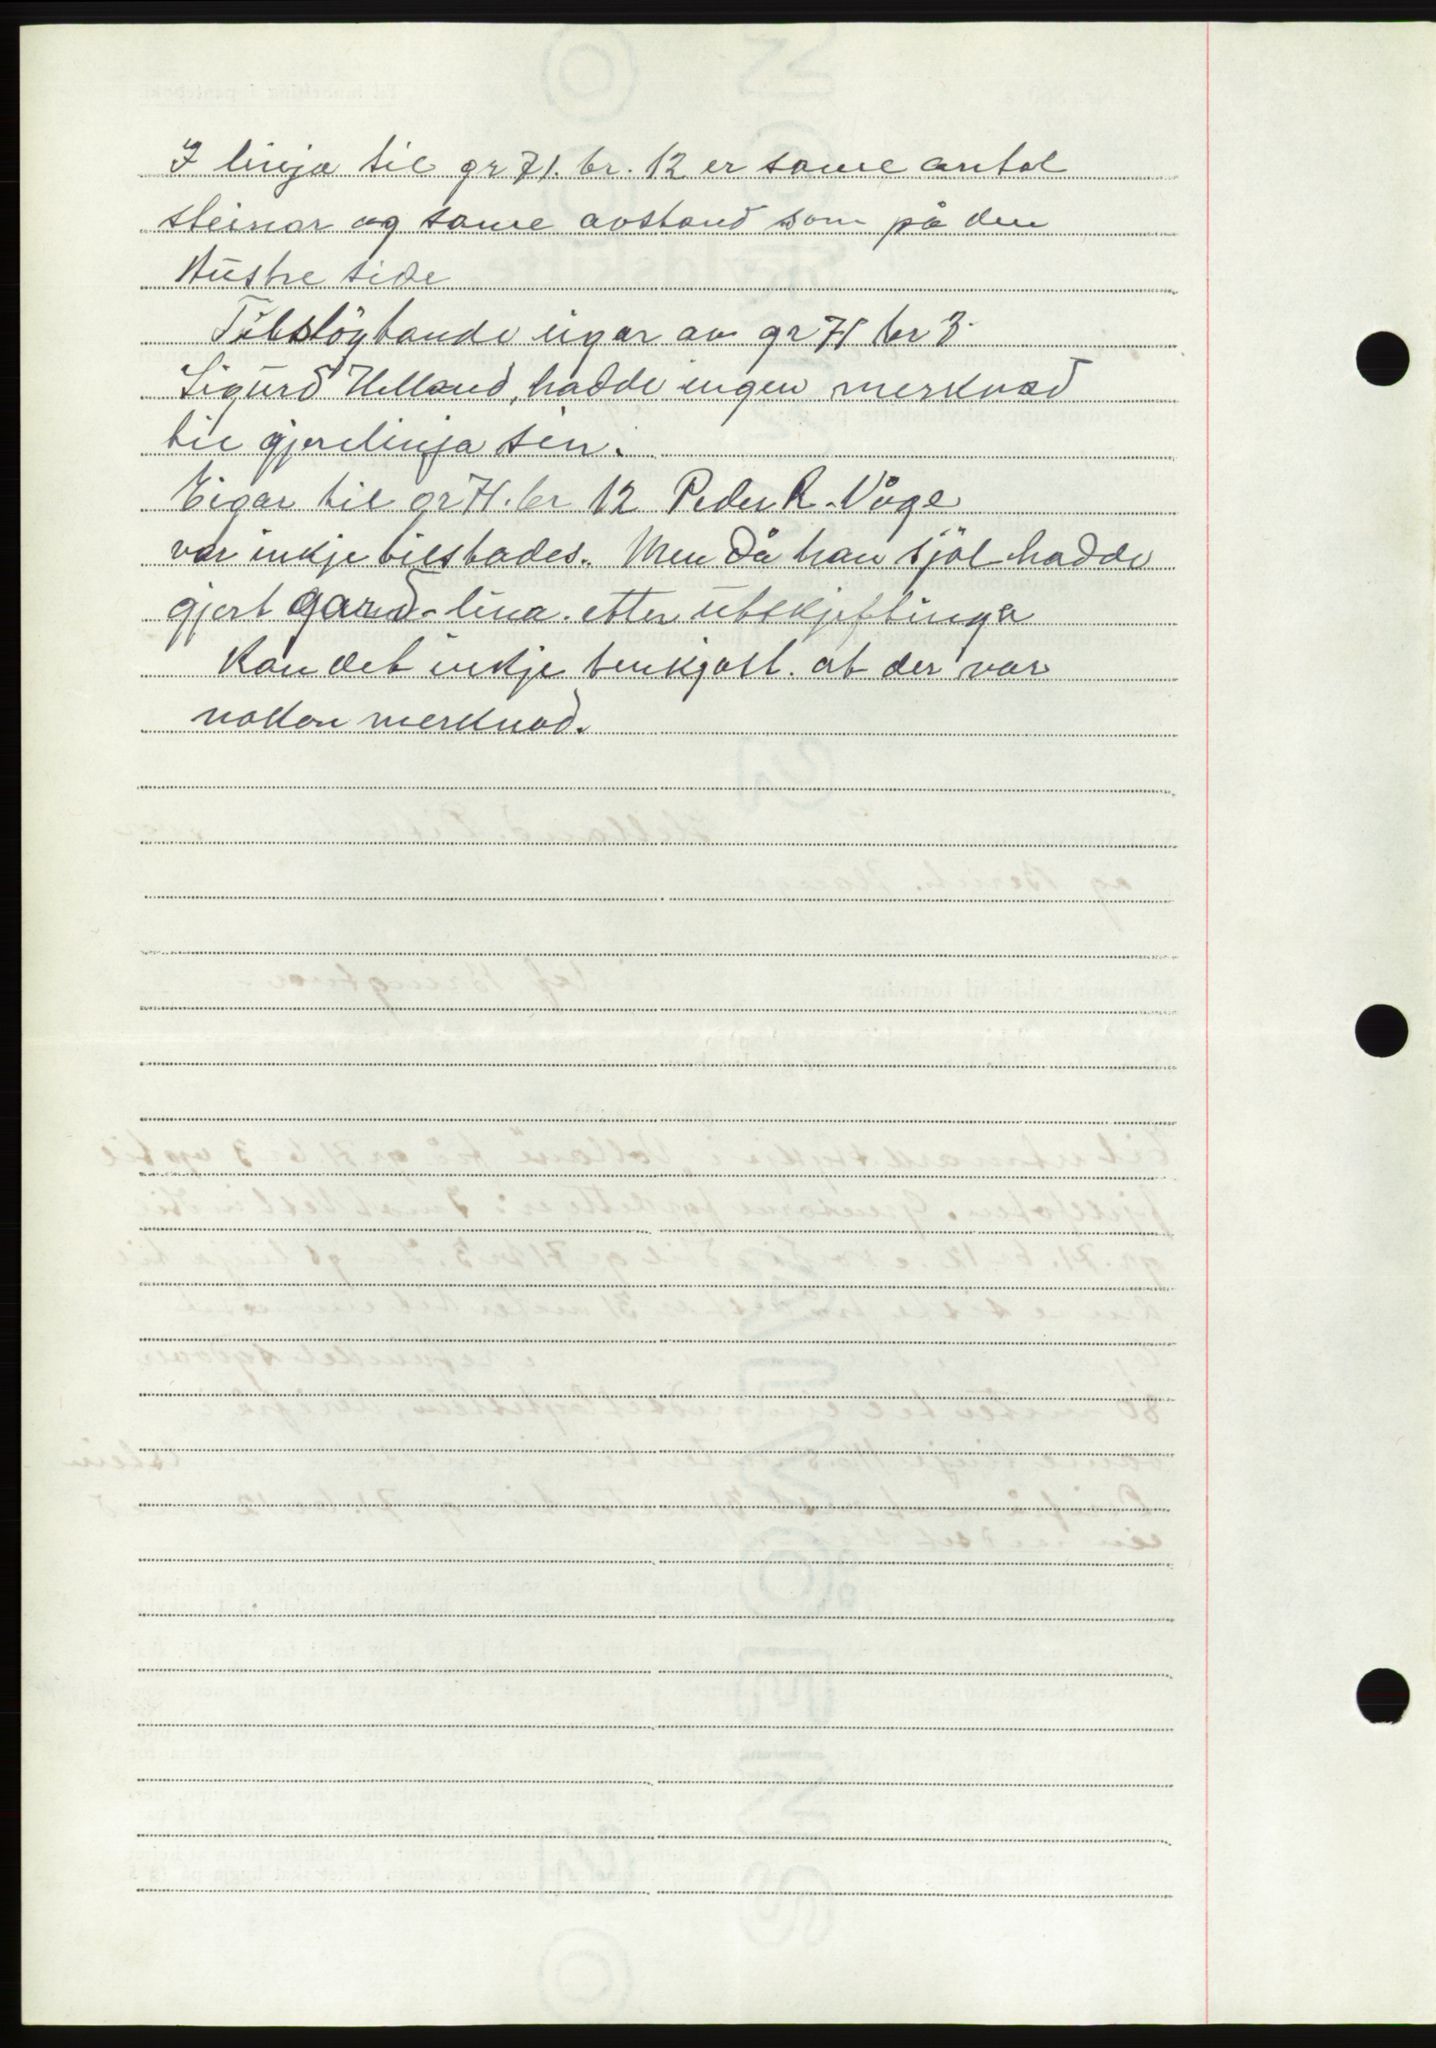 I linja til gr 71. br. 12 er same antal
steinar og same avstand som på den
Austre side
Tilstøytande eigar av gr 71 br 3
Sigurd Helland, hadde ingen merknad
til gjerelinja sin.
Eigar til gr 71. br 12 Peder R. Våge
var inkje tilstades. Men då han sjøl hadde
gjort gard-lina. etter utskjiftinga
kan det inkje tenkjast. at der var
nokon merknad.